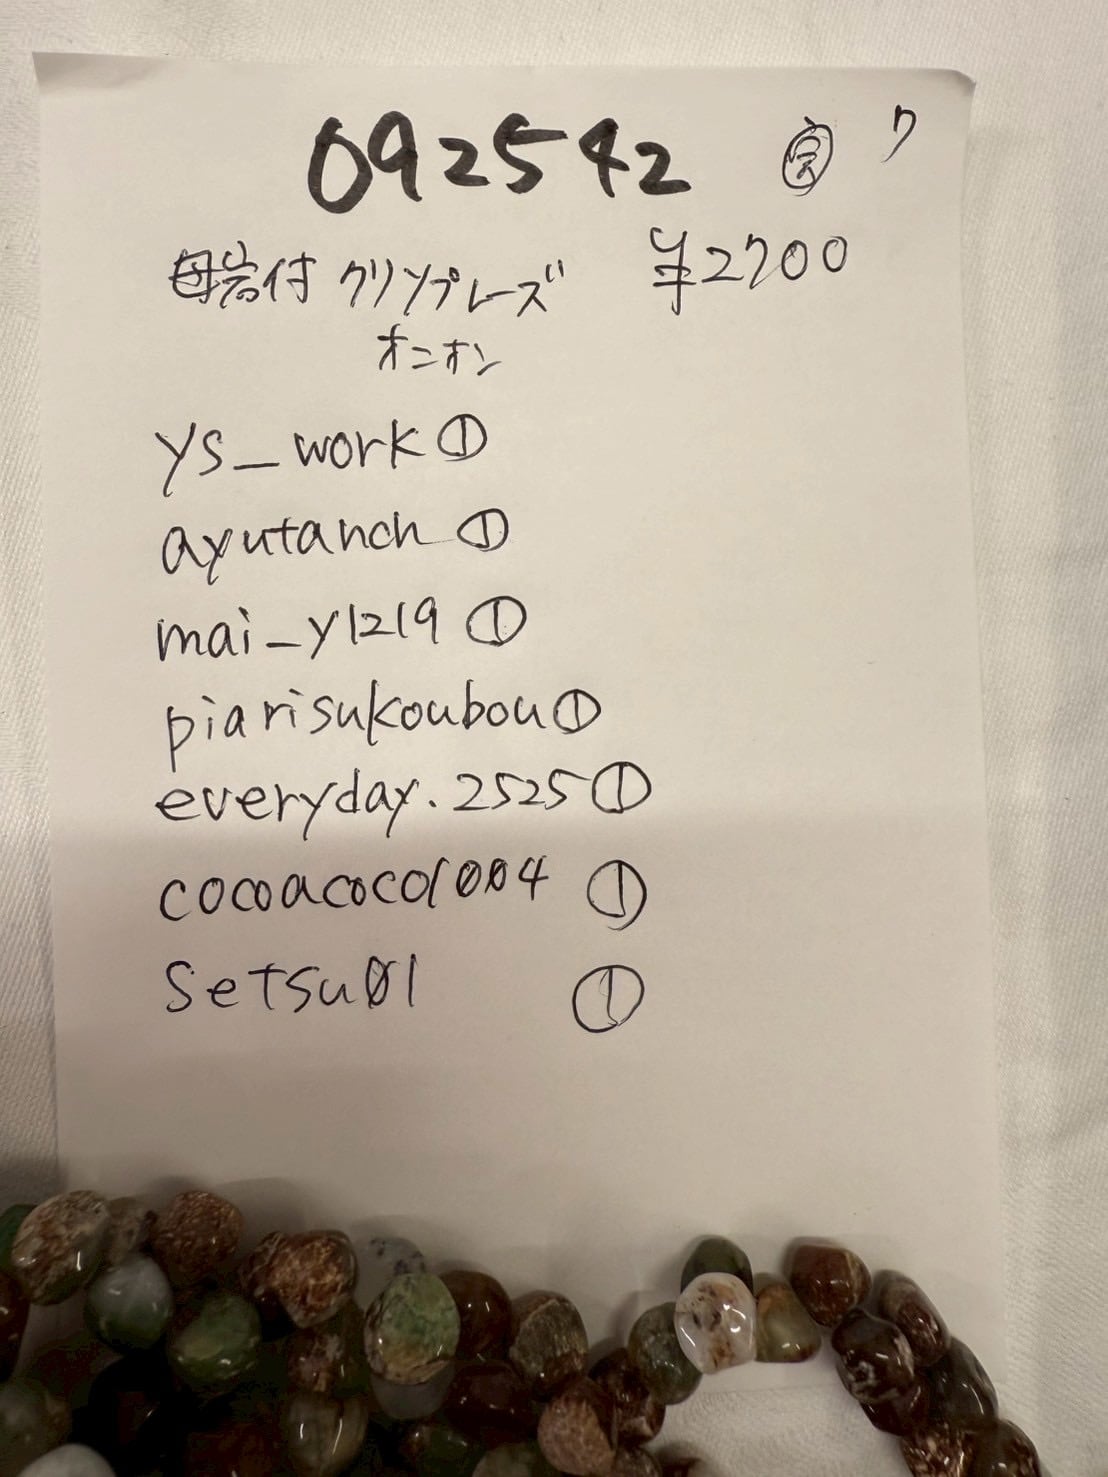 092542 7
母岩付 クリソプレーズ ¥2700
オニオン
ys_work ①
ayutanch ①
mai_y1219 ①
piarisukoubou ①
everyday.2525 ①
cocoacoco1004 ①
setsu01 ①